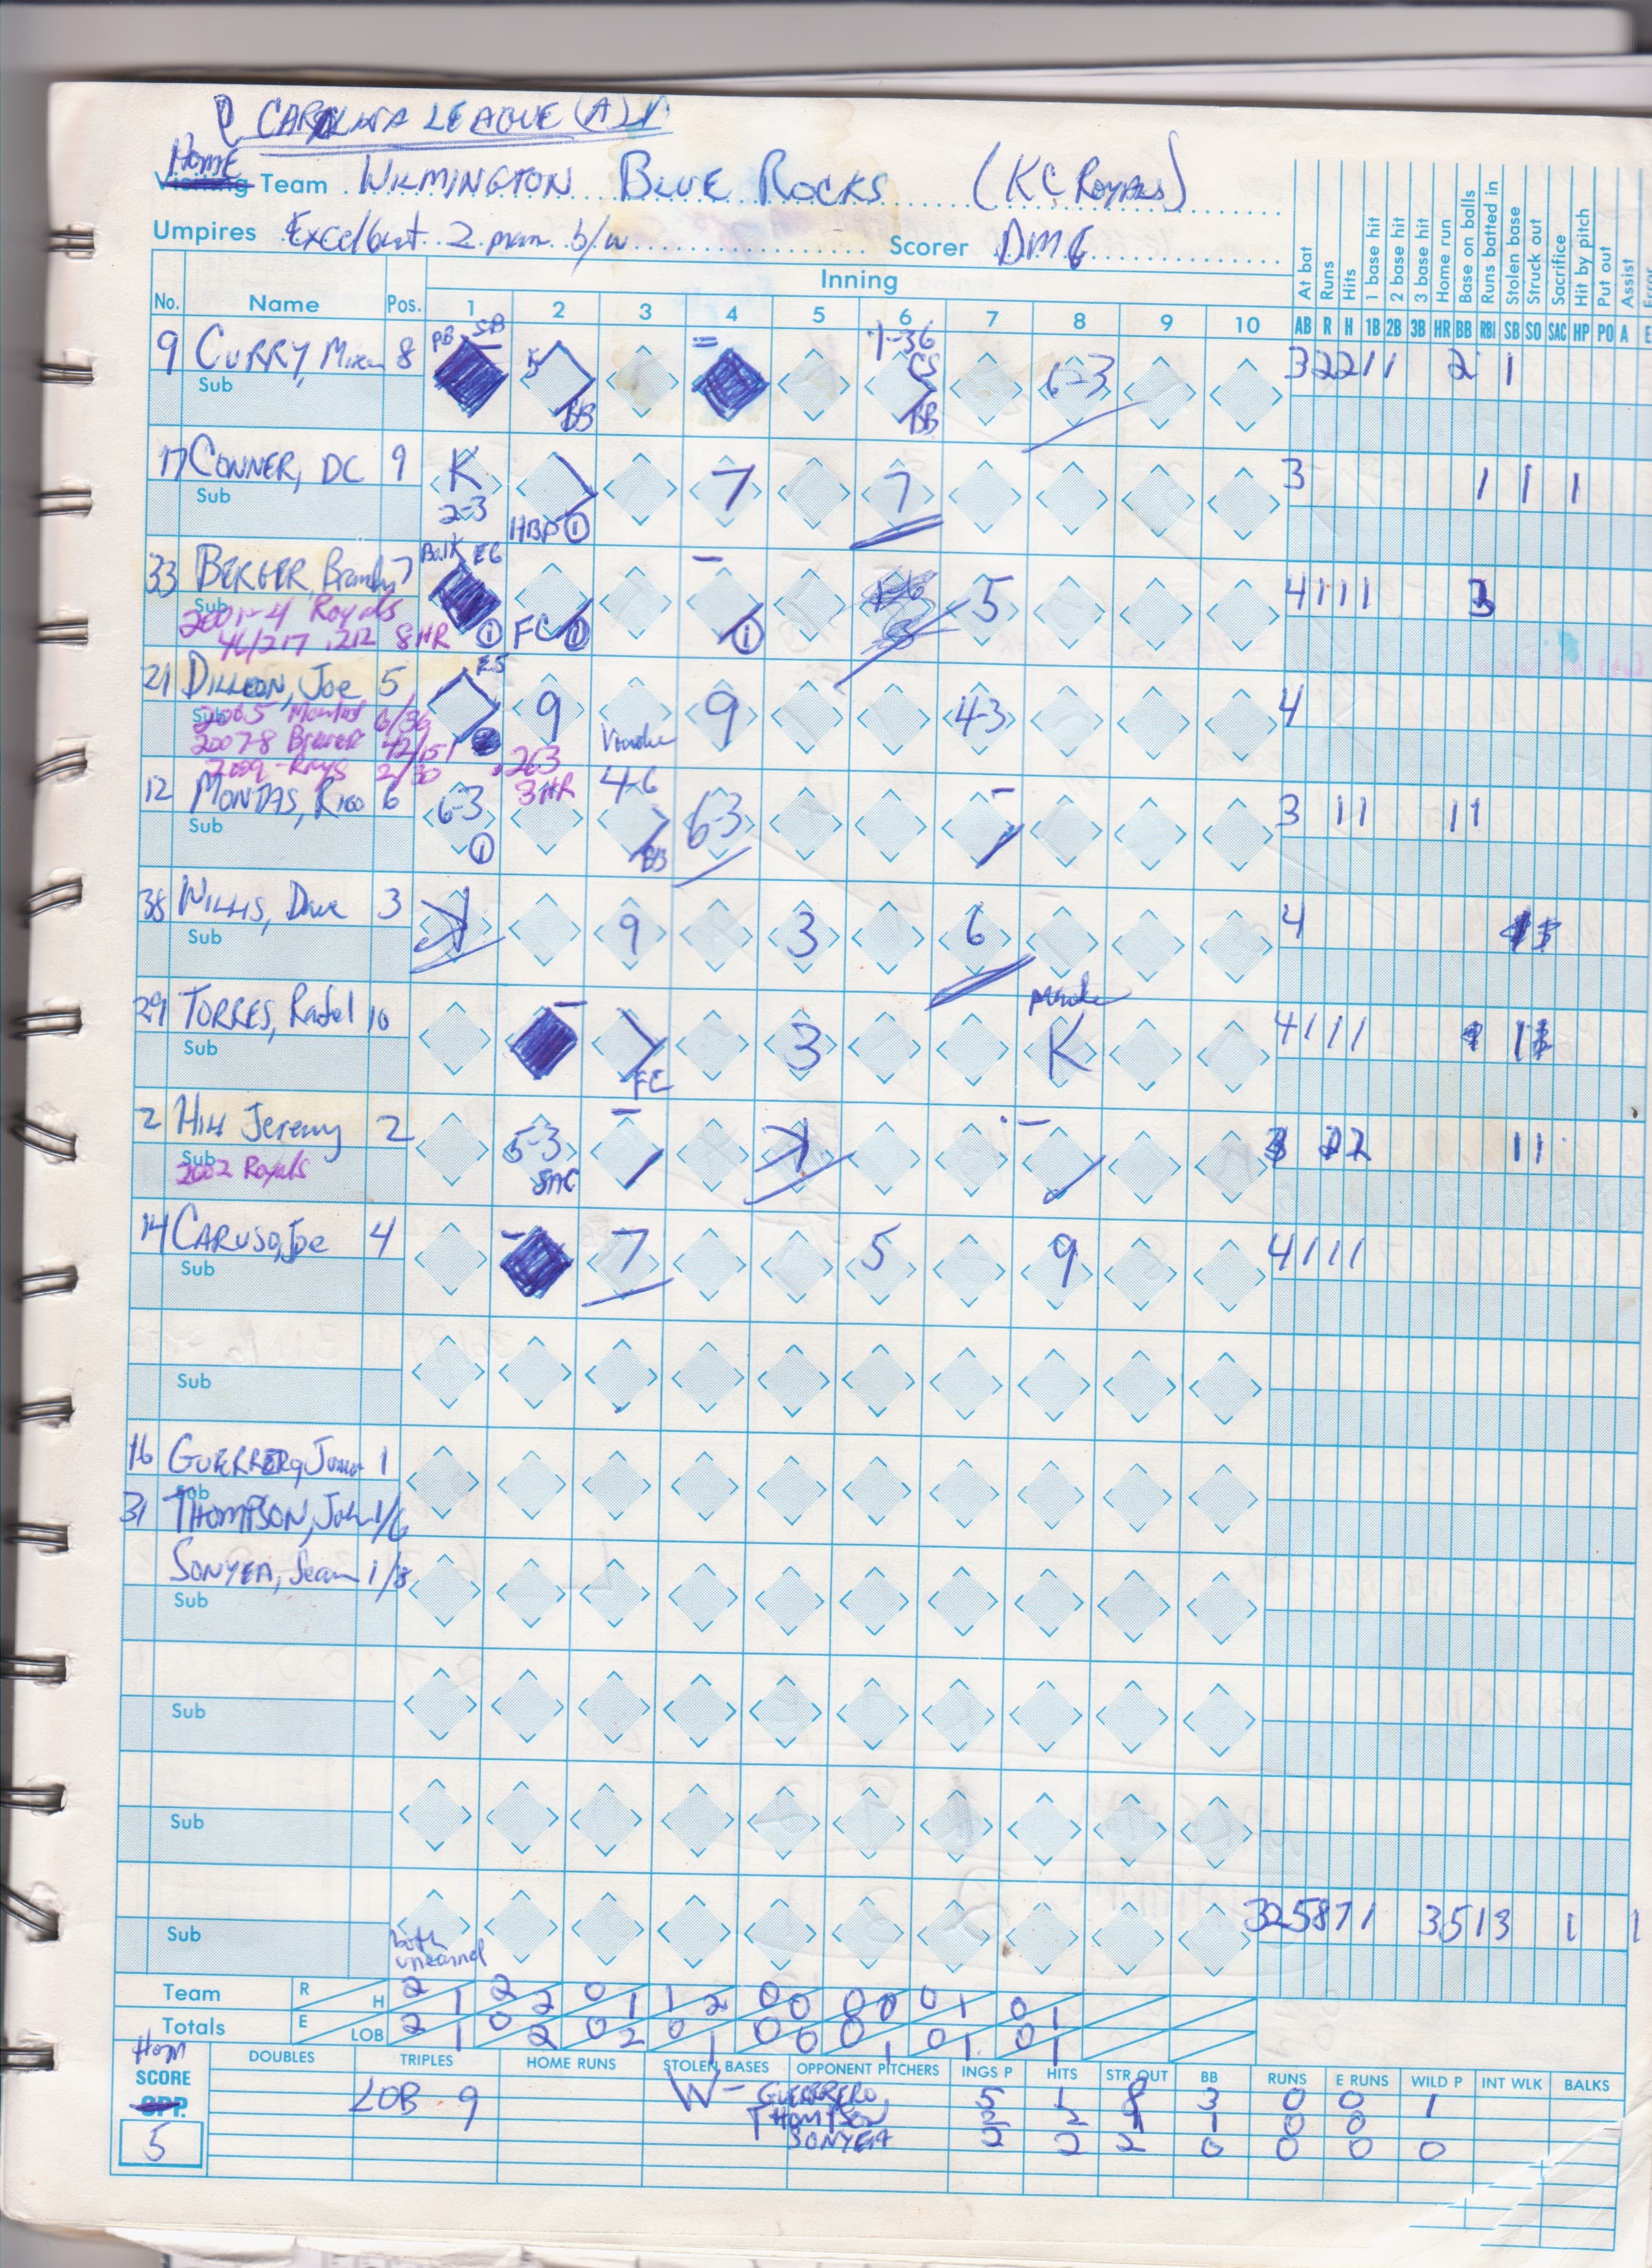 @ CAROLINA LEAGUE (A)
Home
Visiting Team WILMINGTON BLUE ROCKS (KC Royals)
Umpires Excellent 2 man b/w Scorer DMG
No. Name Pos. Inning
1 2 3 4 5 6 7 8 9 10
At bat Runs Hits 1 base hit 2 base hit 3 base hit Home run Base on balls Runs batted in Stolen base Struck out Sacrifice Hit by pitch Put out Assist Error
AB R H 1B 2B 3B HR BB RBI SB SO SAC HP PO A E
PB SB 1-36
9 CURRY, 8 K BB CS BB 6-3 3 2 2 1 1 2 1
Sub
17 CONNER, DC 9 K 2-3 HBP 1 7 7 3 1 1 1
Sub
Balk E6
33 BERGER, Brandy 7 1 FC 1 1 5 4 1 1 1 3
Sub
2001-4 Royals
46/217 .212 8 HR
21 DILLON, Joe 5 E5 9 9 4-3 4
Sub
2005 6/36
2007-8 Brewer 42/151 .263
2009 - Rays 2/30 3 HR
12 6 6-3 1 4-6 BB 6-3 3 1 1 1 1
Sub
38 WILLIS, Dave 3 9 3 6 4
Sub
29 TORRES, Rafael 10 FC 3 K 4 1 1 1
Sub
2 Hill Jeremy 2 5-3 SAC 1 3 2 2 1 1
Sub
2002 Royals
14 CARUSO, Joe 4 7 5 9 4 1 1 1
Sub
Sub
16 GUERRERO, 1
Sub
31 THOMPSON, John 1/6
SONYEA, Sean 1/8
Sub
Sub
Sub
32 5 8 7 1 3 5 1 3 1 1
Sub
both
unearned
Team R H 2 1 2 2 0 1 1 2 0 0 0 0 0 1 0 1
Totals E LOB 2 1 0 2 0 2 0 1 0 0 0 1 0 1 0 1
Home
SCORE
OPP.
5
DOUBLES TRIPLES HOME RUNS STOLEN BASES OPPONENT PITCHERS INGS P HITS STR OUT BB RUNS E RUNS WILD P INT WLK BALKS
LOB 9 W- GUERRERO 5 1 8 3 0 0 1
THOMPSON 2 2 1 1 0 0
SONYEA 2 2 2 0 0 0 0